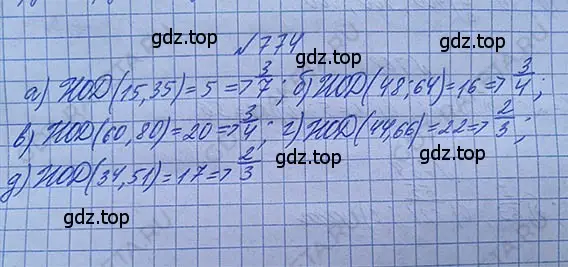 №774
а) НОД(15,35)=5=>3/7; б) НОД(48;64)=16=>3/4;
в) НОД(60,80)=20=>3/4; г) НОД(44,66)=22=>2/3;
д) НОД(34,51)=17=>2/3
gdz.top
gdz.top gdz.top
gdz.top gdz.top
gdz.top gdz.top
gdz.top